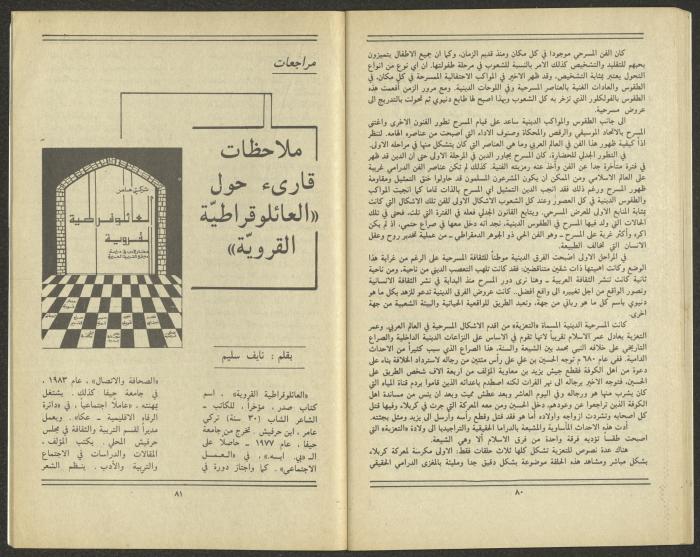 كان الفن المسرحي موجودا في كل مكان ومنذ قديم الزمان، وكما ان جميع الاطفال يتميزون
بحبهم للتقليد والتشخيص كذلك الامر بالنسبة للشعوب في مرحلة طفولتها. ان أي نوع من انواع
التحول يعتبر بمثابة التشخيص، وقد ظهر الاخير في المواكب الاحتفالية الممسرحة في كل مكان، في
الطقوس والعادات الغنية بالعناصر المسرحية وفي اللوحات الدينية. ومع مرور الزمن أفعمت هذه
الطقوس بالفولكلور الذي تزخر به كل الشعوب وبهذا اصبح لها طابع دنيوي ثم تحولت بالتدريج الى
عروض مسرحية.
الى جانب الطقوس والمواكب الدينية ساعد على قيام المسرح تطور الفنون الاخرى واغتنى
المسرح بالاتحاد الموسيقي والرقص والمحكاة وصنوف الاداء التي أصبحت من عناصره الهامة. لننظر
اذاً كيفية ظهور هذا الفن في العالم العربي وما هي العناصر التي كان يتشكل منها في مراحله الاولى.
في التطور الجدلي للحضارة، كان المسرح يجاور الدين في المرحلة الاولى حتى أن الدين قد ظهر
في فترة متأخرة جدا عن الفن وأخذ عنه رمزيته الفنية. كذلك لم تكن عناصر الفن الدرامي غريبة
على العالم الاسلامي ومن الممكن ان يكون المشرعون المسلمون قد حاولوا خنق التمثيل ومقاومة
ظهور المسرح ورغم ذلك فقد انجب الدين التمثيل اي المسرح بالذات قاما كما انجبت المواكب
والطقوس الدينية في كل العصور وعند كل الشعوب الاشكال الاولى للفن تلك الاشكال التي كانت
بمثابة المنابع الاولى للعرض المسرحي. ويتابع القانون الجدلي فعله في الفترة التي تلت، فحتى في تلك
الحالات التي ولد فيها المسرح في الطقوس الدينية، نجد انه دخل معها في صراع حتمي، اذ لم يكن
اكره وأكثر غربة على المسرح ـ وهو الفن الحي ذو الجوهر الدمقراطي ـ من عملية تخدير روح وعقل
الانسان التي تخالف الطبيعة.
في المراحل الاولى اضبحت الفرق الدينية موطناً للثقافة المسرحية على الرغم من غرابة هذا
الوضع وكانت اهميتها ذات شقين متناقضين: فقد كانت تلهب التعصب الديني من ناحية، ومن ناحية
ثانية كانت تنشر الثقافة العربية ـ وهنا نرى دور المسرح منذ البداية في نشر الثقافة الانسانية
وتصوير الواقع من اجل تغييره الى واقع افضل. كانت عروض الفرق الدينية تدعو للزهد بكل ما هو
دنيوي باسم كل ما هو رباني من جهة، وتعبد الطريق للواقعية الحياتية والبيئة الشعبية من جهة
اخرى.
كانت المسرحية الدينية المسماة «التعزية» من اقدم الاشكال المسرحية في العالم العربي. وعمر
التعزية يعادل عمر الاسلام تقريباً لانها تقوم في الاساس على النزاعات الدينية الداخلية والصراع
التاريخي على خلافة النبي محمد بين الشيعة والسنة، هذا الصراع الذي سبب كثيراً من الاحداث
الدامية. ففي عام ٦٨٠ م توجه الحسين بن علي على رأس مئتين من رجاله لاسترداد الخلافة بناء على
دعوة من أهل الكوفة فقطع جيش يزيد بن معاوية المؤلف من اربعة الاف شخص الطريق على
الحسين، فتوجه الاخير برجاله الى نهر الفرات لكنه اصطدم باعدائه الذين قاموا بردم قناة المياه التي
كان يشرب منها هو ورجاله وفي اليوم العاشر وبعد عطش مميت وبعد ان يئس من مساندة اهل
الكوفة الذين تراجعوا عن وعودهم، دخل الحسين ومن معه المعركة التي جرت في كربلاء وفيها قتل
كل اصحابه وتشردت ازواجه وأولاده، أما هو فقد قتل وقطع رأسه وأرسل الى يزيد ومثل بجثته.
أدت هذه الاحداث المأساوية والمشبعة بالدراما الحقيقية والتراجيديا الى ولادة «التعزية» التي
اصبحت طقسا تؤديه فرقة واحدة من فرق الاسلام ألا وهي الشيعة.
هناك عدة نصوص للتعزية تشكل كلها ثلاث حلقات فقط: الاولى مكرسة لمعركة كربلاء
بشكل مباشر ومشاهد هذه الحلقة موضوعة بشكل دقيق جدا ومليئة بالمغزى الدرامي الحقيقي
٨٠
مراجعات
ملاحظات
قارىء حول
«العائلوقراطيّة
القرويّة»
شوكي عامر
العائلوقراطية
القروية
بقلم : نايف سليم
«العائلوقراطية القروية» ، اسم
كتاب صدر ، مؤخراً ، للكاتب -
الشاعر الشاب (٣٠ سنة) تركي
عامر ، ابن حرفيش . تخرج من جامعة
حيفا ، عام ١٩٧٧ ـ حاصلاً على
الـ «بي. ايه.» ، في «العمل
الاجتماعي» . كما واجتاز دورة في
«الصحافة والاتصال» ، عام ١٩٨٣ ،
في جامعة حيفا كذلك . يشتغل
بمهنته ، «عاملاً اجتماعياً ، في «دائرة
الرفاه الاقليمية ـ عكا» . ويعمل
مديراً لقسم التربية والثقافة في مجلس
حرفيش المحلي . يكتب المؤلف ،
المقالات والدراسات في الاجتماع
والتربية والأدب . ينظم الشعر
٨١